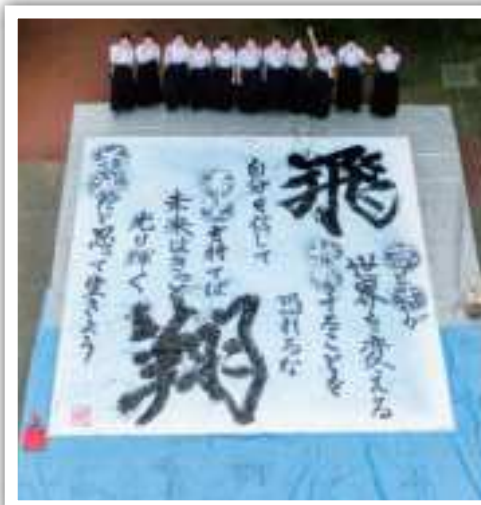 飛
が
世界を変える
することを
恐れるな
自分を信じて
を持てば
未来はきっと
光り輝く
翔
って生きよう